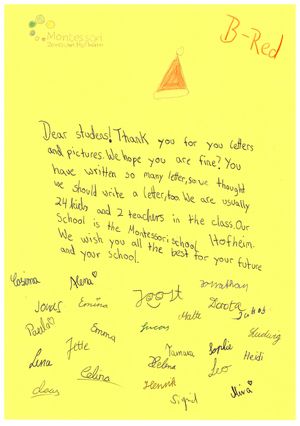 Montessori
Zentrum Hofheim
B-Red
Dear students! Thank you for you letters
and pictures. We hope you are fine? You
have written so many letter, so we thought
we should write a letter, too. We are usually
24 kids and 2 teachers in the class. Our
School is the Montessorischool Hofheim.
We wish you all the best for your future
and your school.
Cosima Alena Jonathan
Jonas Emina Joost Dorota
Paella Malte Julius
Emma Lucas Ludwig
Jette Tamara Sophie
Lina Helena Leo Heidi
Claas Celina Henrik Mira
Sigrid